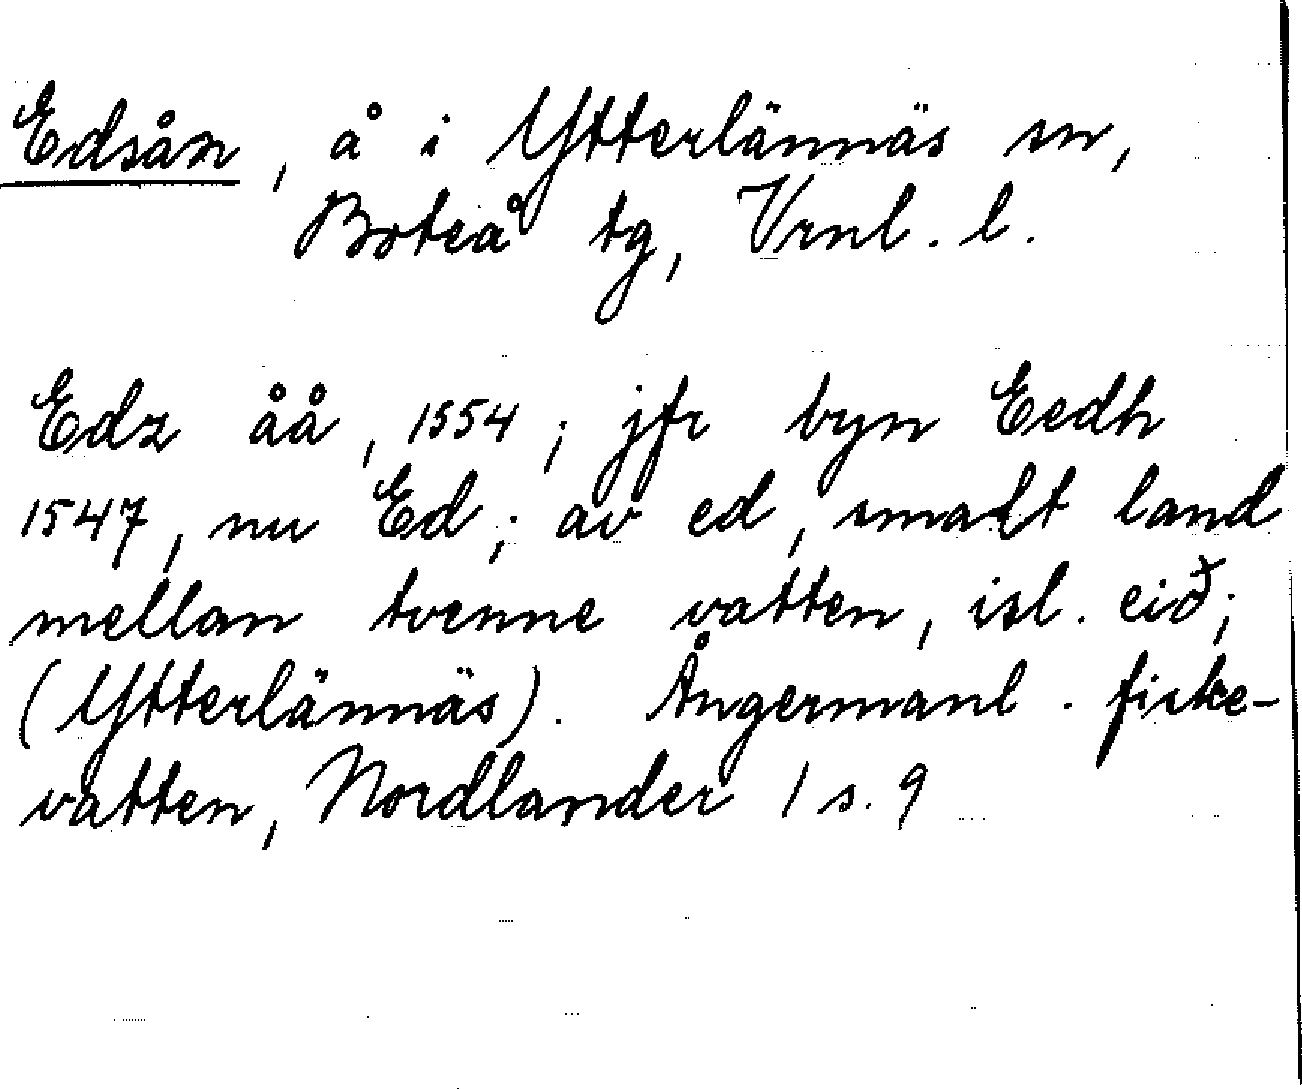 Edsån, å i Ytterlännäs sn,
Boteå tg, Vrnl. l.
Edz åå, 1554; jfr byn Eedh
1547, nu Ed; av ed, smalt land
mellan tvenne vatten, isl. eið;
(Ytterlännäs). Ångermanl. fiske-
vatten, Nordlander 1 s. 9